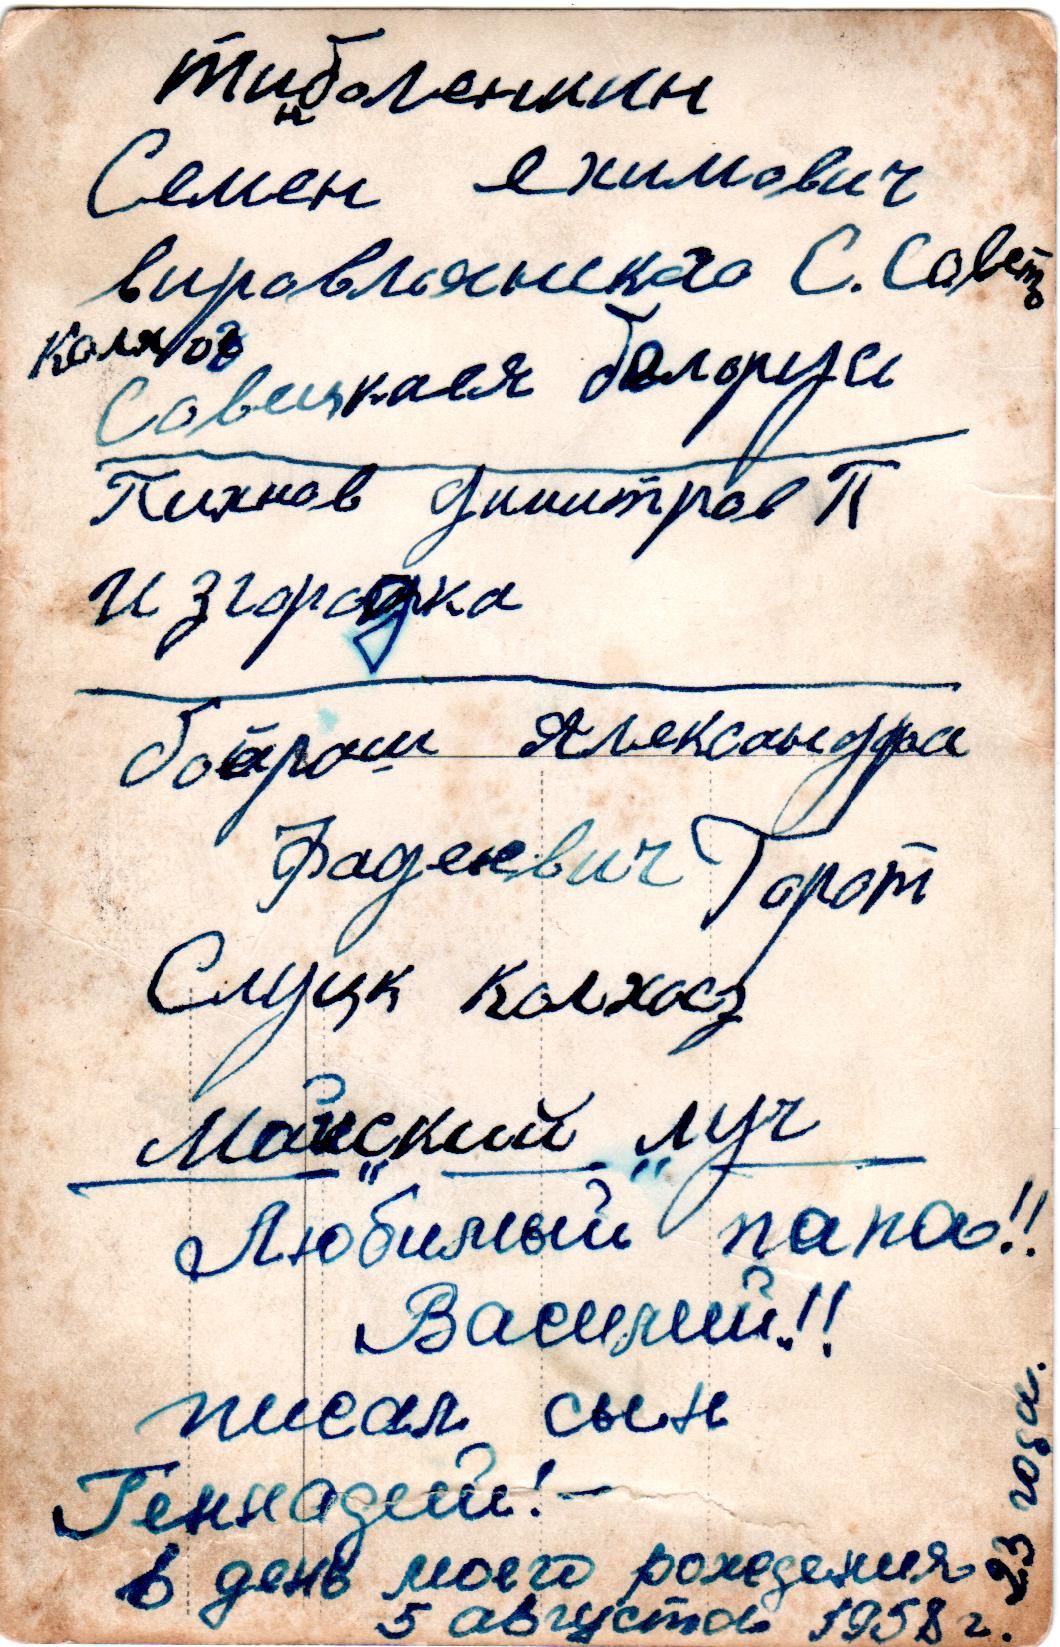 Семен ехимович
вировлянскаго С. Совет
Совецкаея белоруси
Пихнов Димитров П
Изгородка
Александра
Фадеевич Горот
Слуцк колхосз
Майский "луч"
Любимый папа!!
Василий!!
писал сын
Геннадий! –
в день моего рождения
5 августа 1958 г.
23 года.